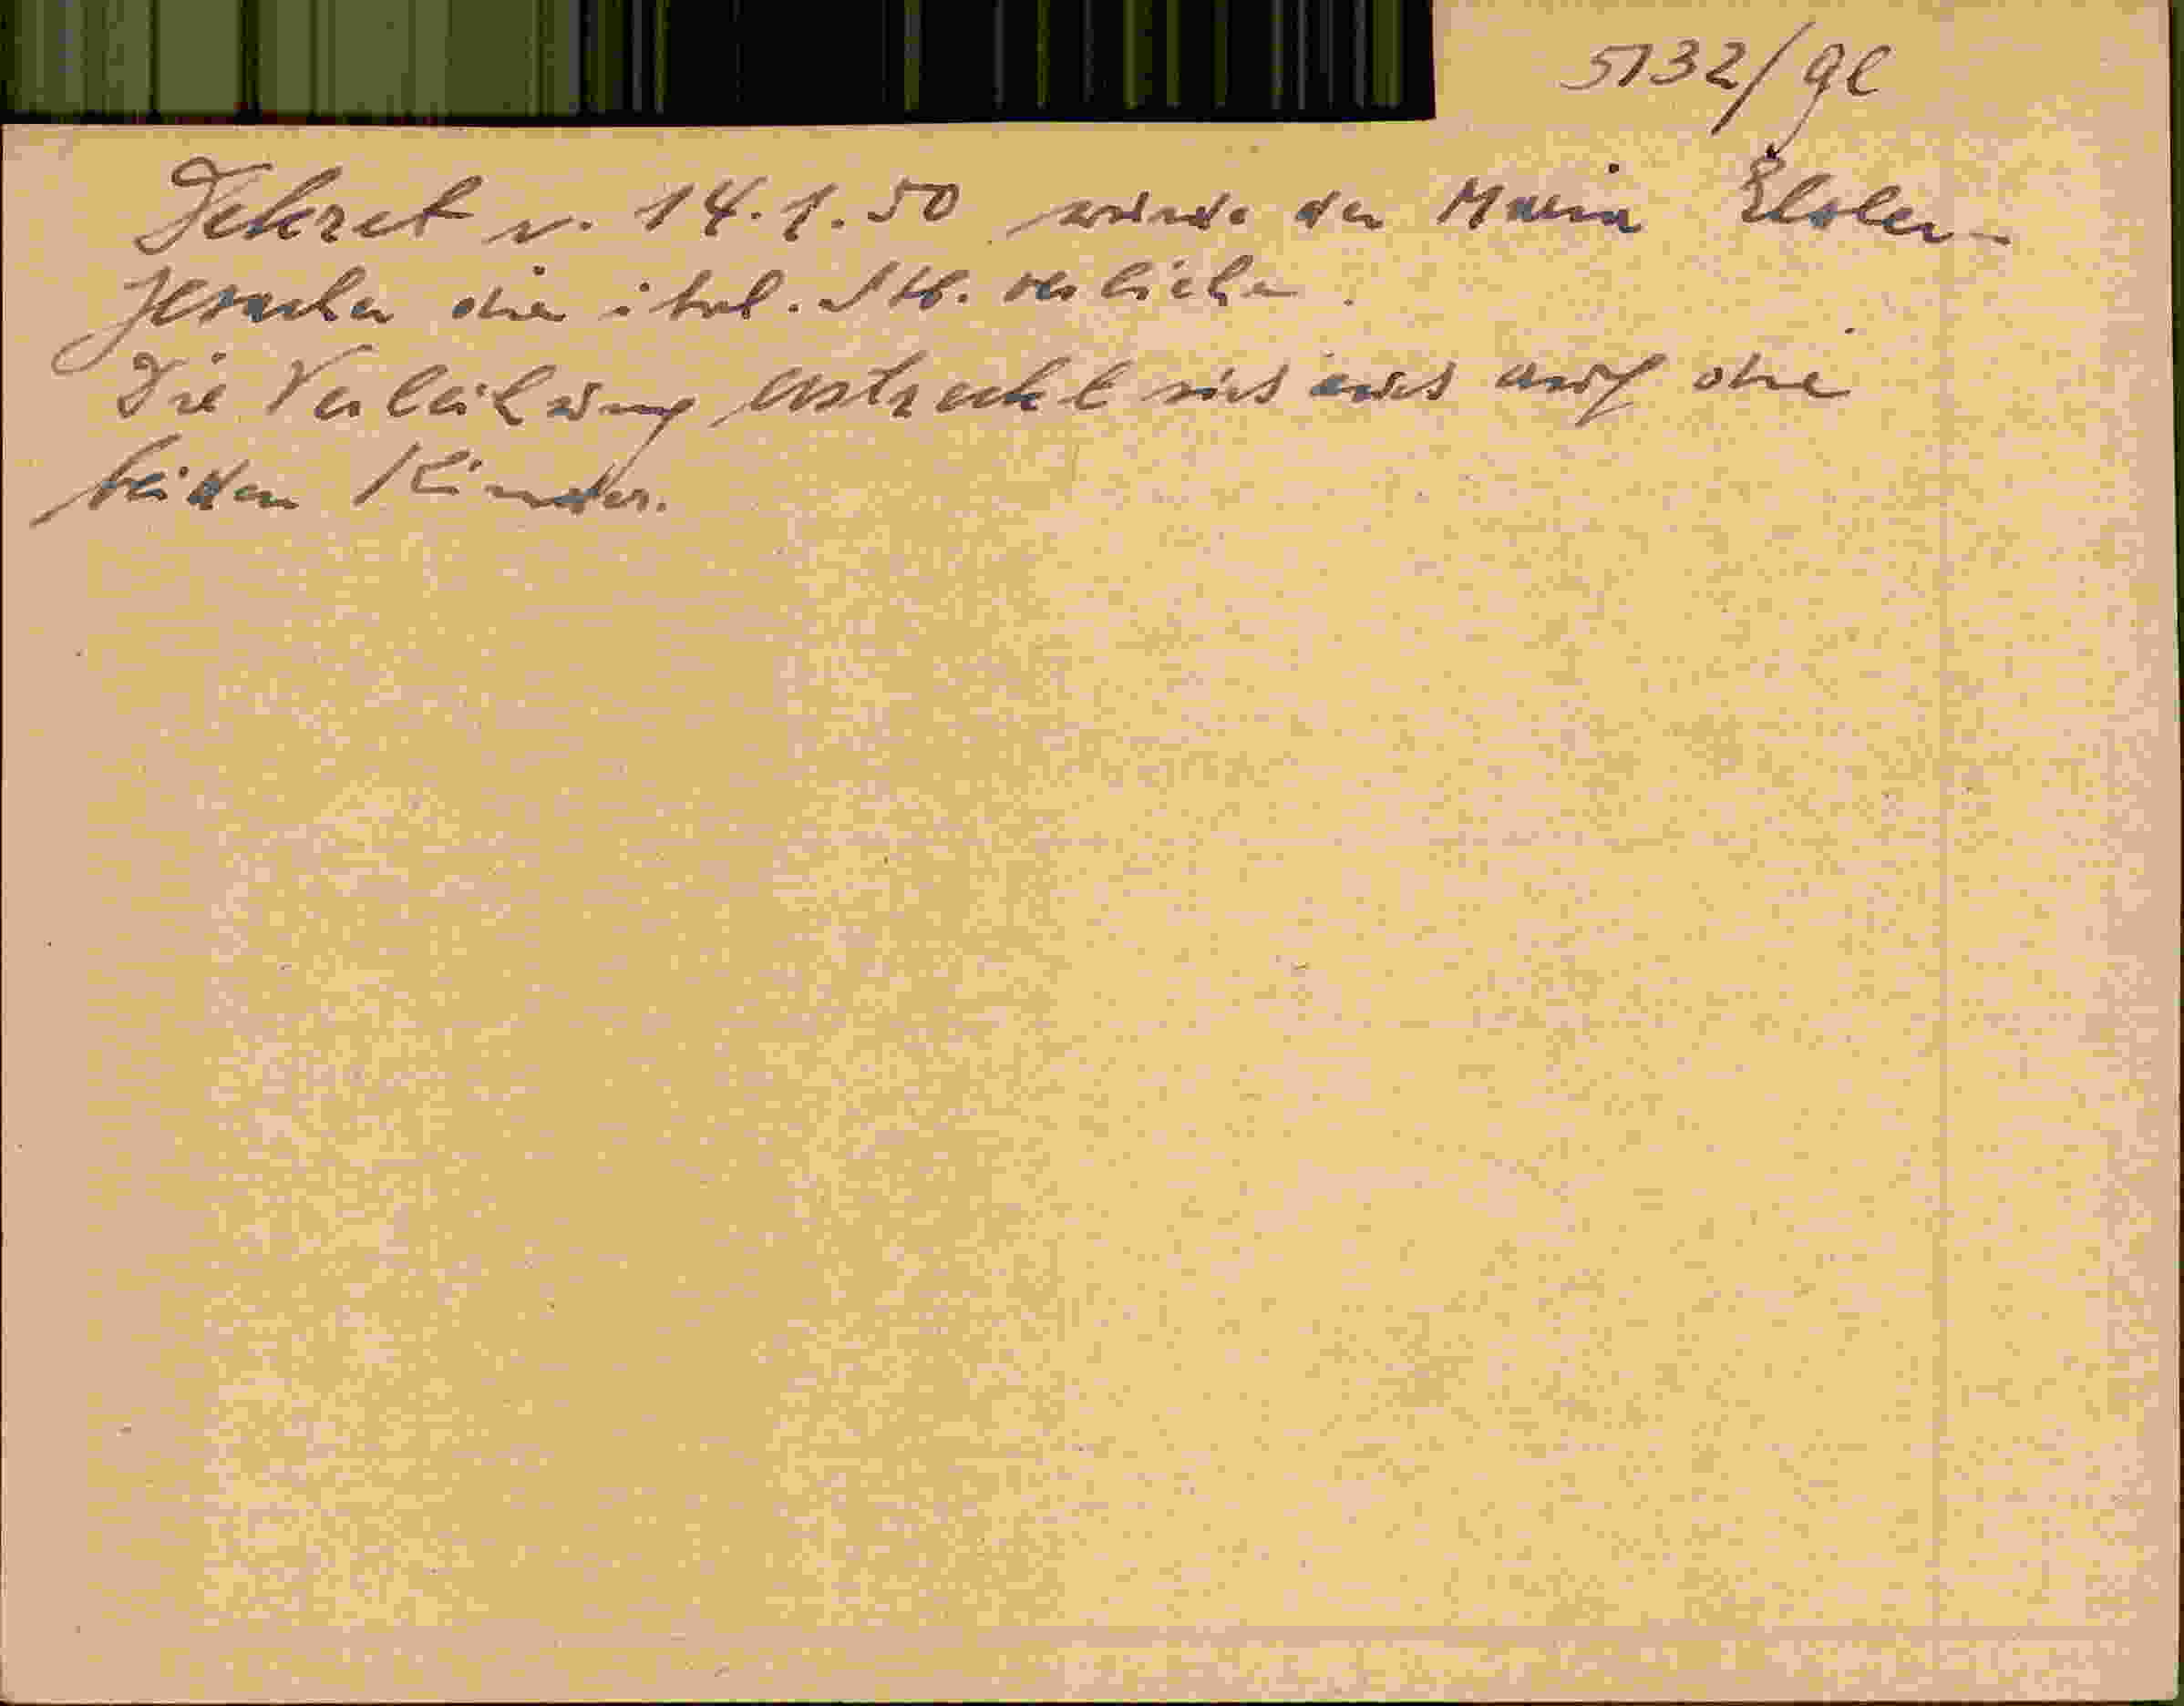 5132/gl
Dekret v. 14.1.50 wurde der Maria
die ital. Stb. verliehen.
Die Verleihung erstreckt sich auch auf die
beiden Kinder.